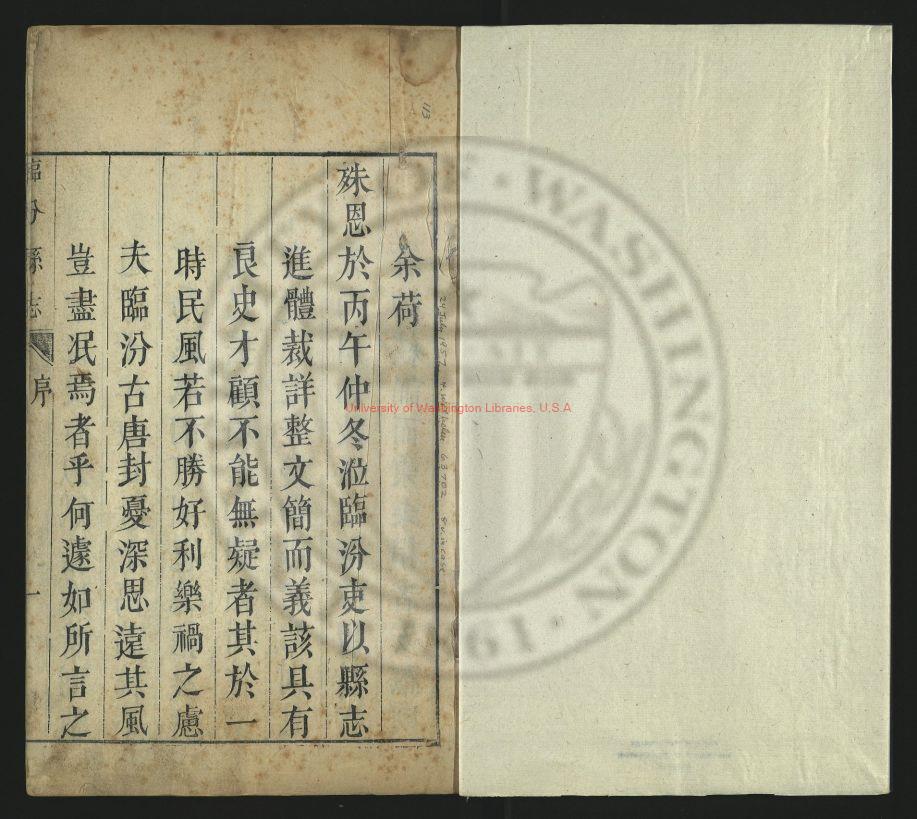 余荷
殊恩於丙午仲冬涖臨汾吏以縣志
進體裁詳整文簡而義該具有
良史才顧不能無疑者其於一
時民風若不勝好利樂禍之慮
夫臨汾古唐封憂深思遠其風
豈盡泯焉者乎何遽如所言之
臨汾縣志
序
一
University of Washington Libraries, U.S.A
24 July 1957
WASHINGTON
1861